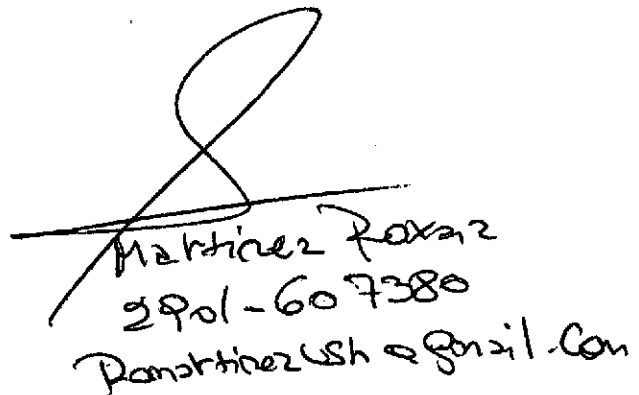 Martinez Roxana
2901-607380
Romartinezush@gmail.com